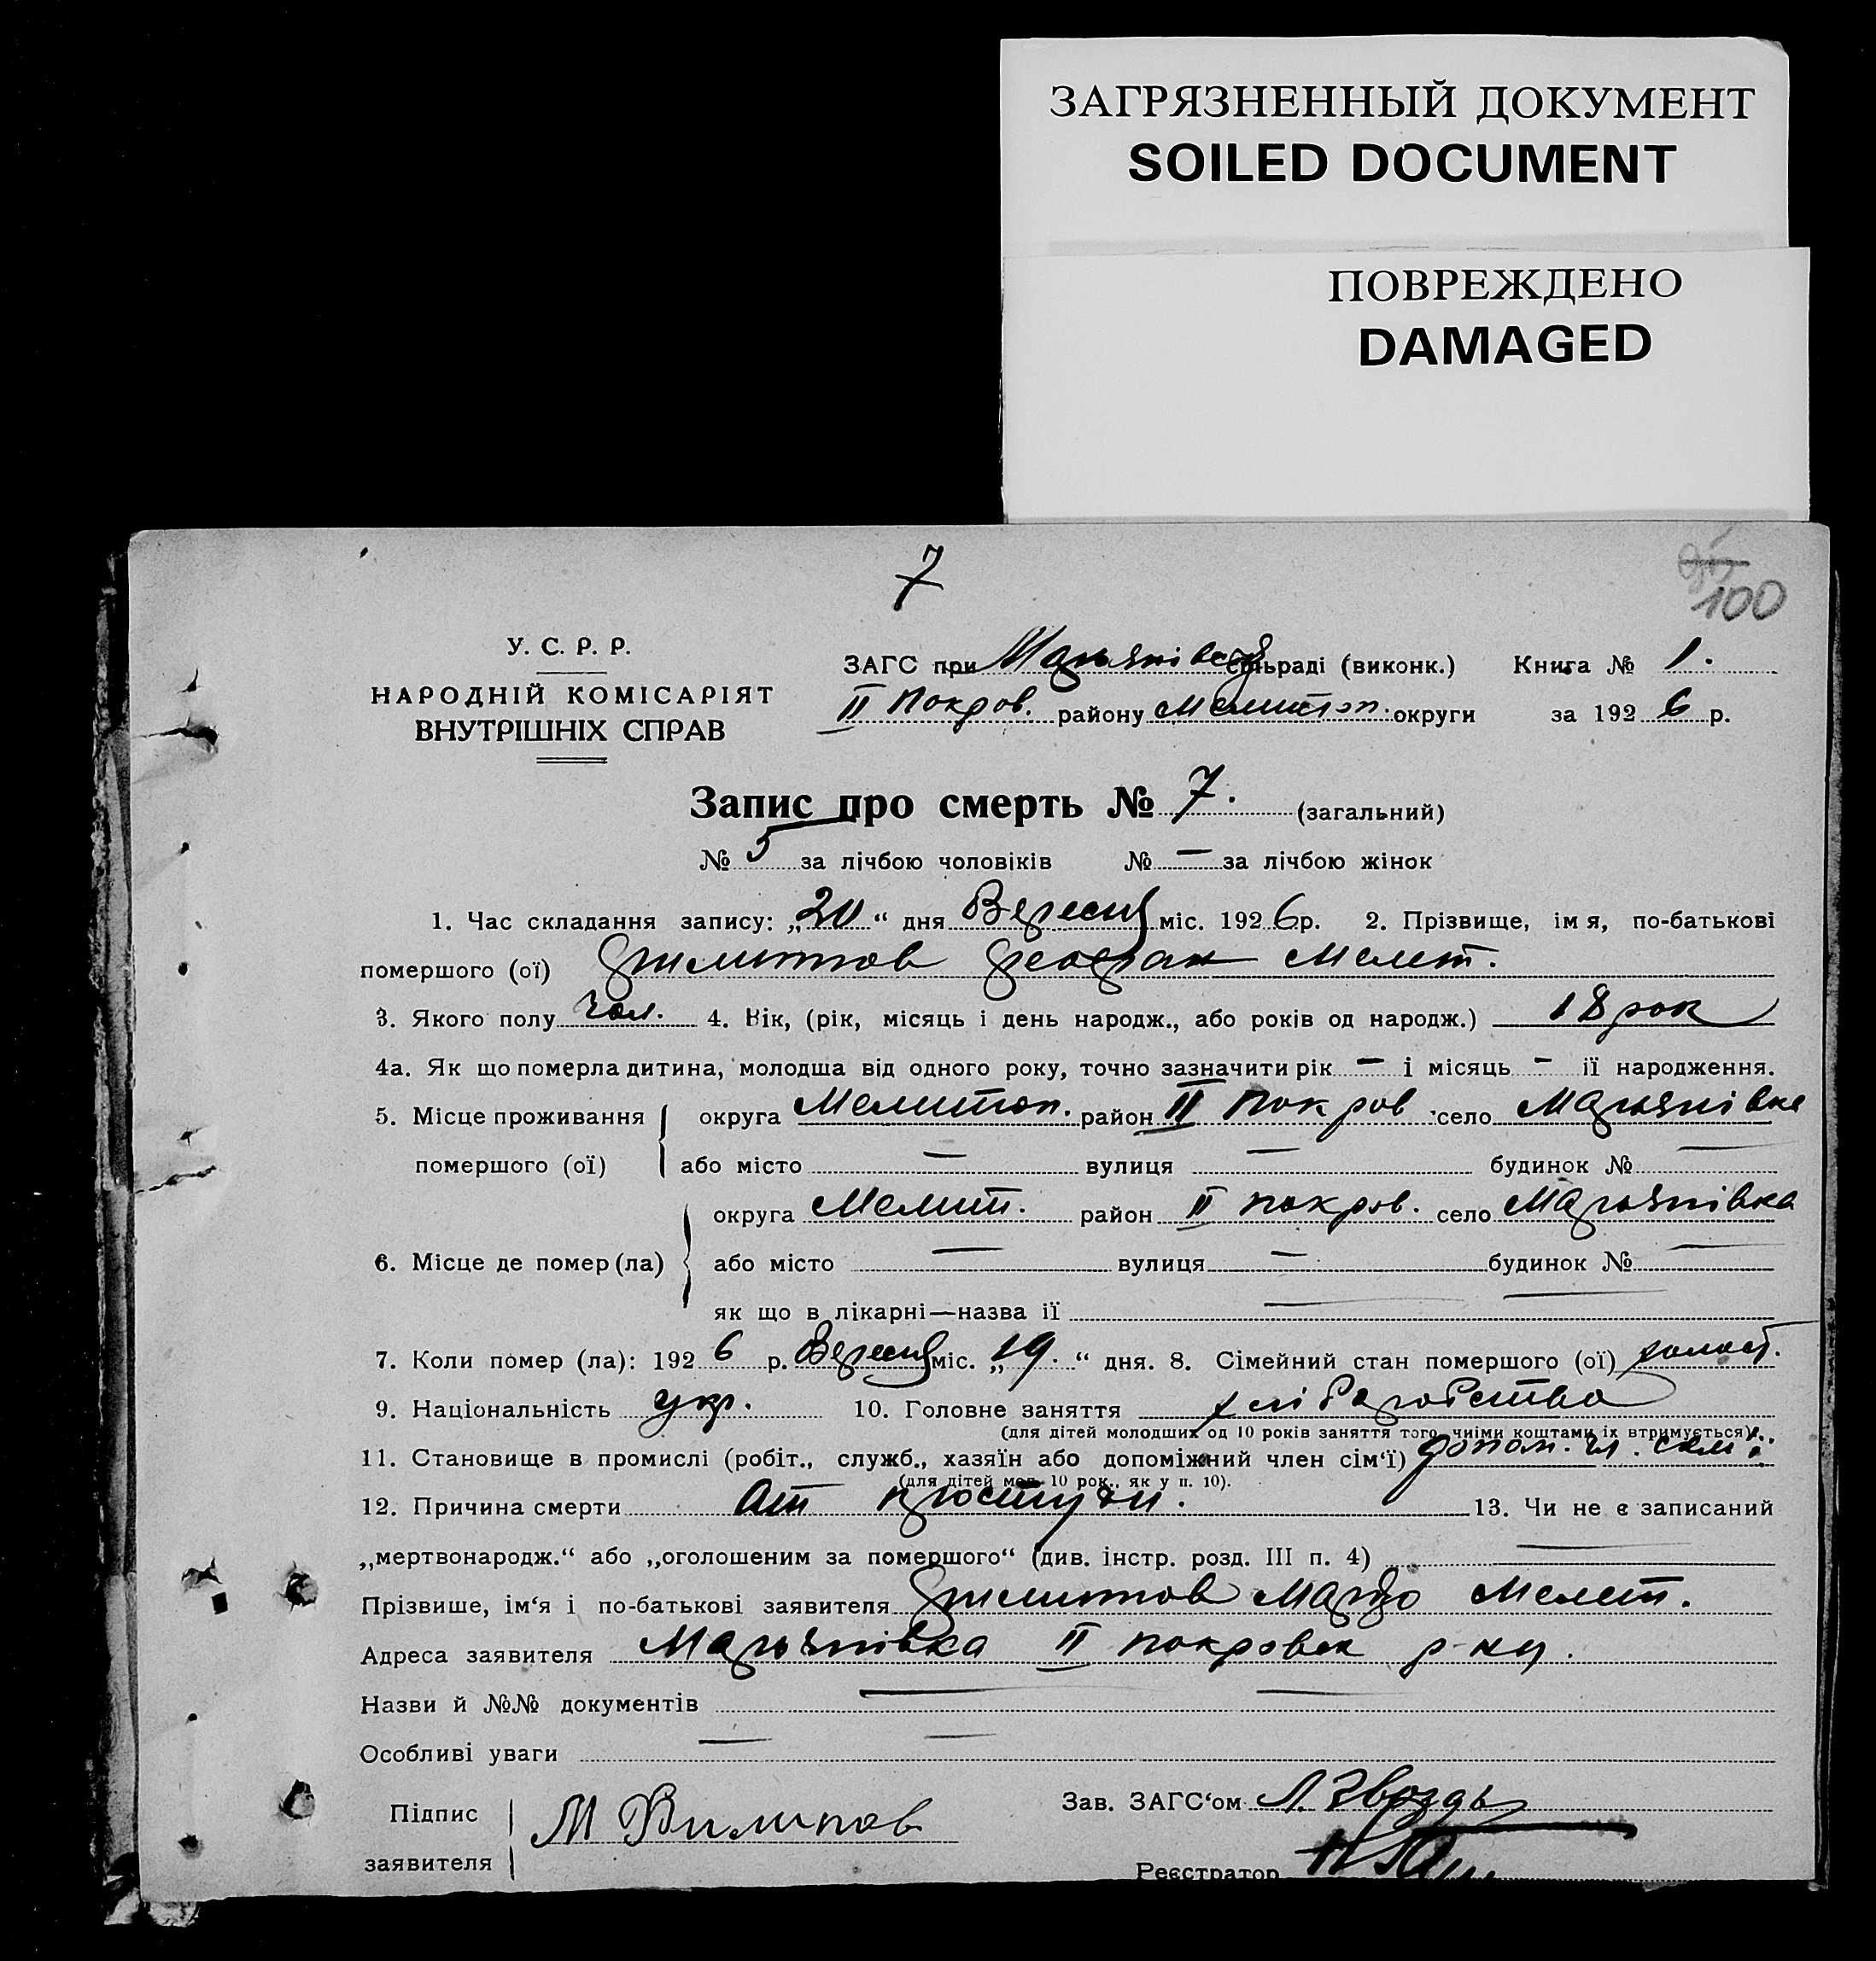 ЗАГРЯЗНЕННЫЙ ДОКУМЕНТ
SOILED DOCUMENT
ПОВРЕЖДЕНО
DAMAGED
7
100
У. С. Р. Р.
НАРОДНІЙ КОМІСАРІЯТ
ВНУТРІШНІХ СПРАВ
ЗАГС при сільраді (виконк.) Книга № 1.
II Покров. району Мелитоп. округи за 1926 р.
Запис про смерть № 7. (загальний)
№ 5 за лічбою чоловіків № — за лічбою жінок
1. Час складання запису: „20“ дня Вересня міс. 1926 р. 2. Прізвище, імя, по-батькові
помершого (ої) Филиппов Феофан Мелет.
3. Якого полу чол. 4. Вік, (рік, місяць і день народж., або років од народж.) 18 рок
4а. Як що померла дитина, молодша від одного року, точно зазначити рік — і місяць — ії народження.
5. Місце проживання округа Мелитоп. район II Покров село Мар'янівка
помершого (ої) або місто — вулиця — будинок № —
округа Мелит. район II покров. село Мар'янівка
6. Місце де помер (ла) або місто — вулиця — будинок № —
як що в лікарні—назва ії —
7. Коли помер (ла): 1926 р. Вересня міс. „19.“ дня. 8. Сімейний стан помершого (ої) холост.
9. Національність укр. 10. Головне заняття хліборобство
(для дітей молодших од 10 років заняття того, чиїми коштами їх втримується).
11. Становище в промислі (робіт., служб., хазяїн або допоміжний член сім‘ї) допом. чл. сем'ї
(для дітей мол. 10 рок., як у п. 10).
12. Причина смерти От простуди. 13. Чи не є записаний
„мертвонародж.“ або „оголошеним за помершого“ (див. інстр. розд. III п. 4) —
Прізвише, ім‘я і по-батькові заявителя Филиппов Мелет.
Адреса заявителя Мар'янівка II покровск р-ну.
Назви й №№ документів —
Особливі уваги —
Підпис
заявителя
М Филипов
Зав. ЗАГС‘ом
Реєстратор